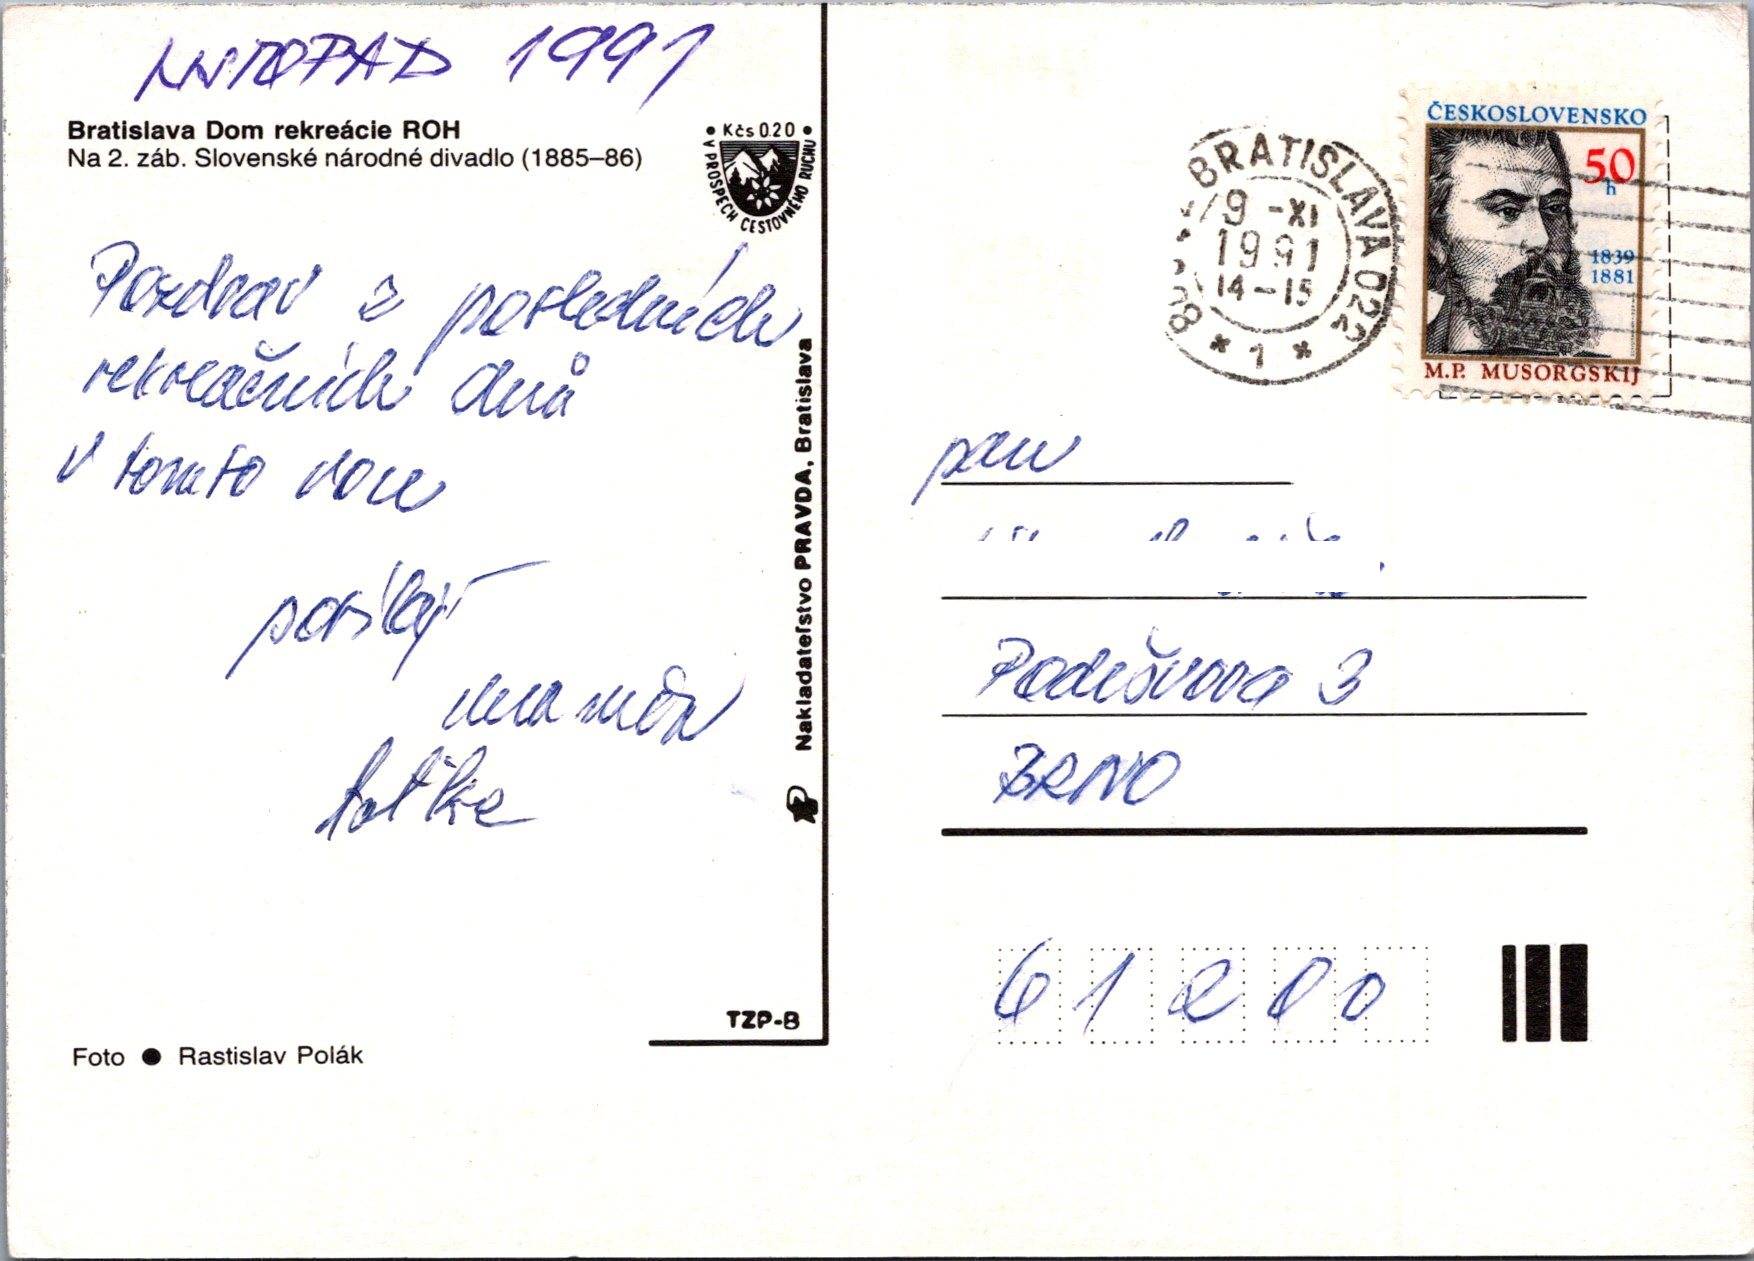 LISTOPAD 1991
Bratislava Dom rekreácie ROH
Na 2. záb. Slovenské národné divadlo (1885–86)
Kčs 0.20
V PROSPECH CESTOVNÉHO RUCHU
Pozdrav z posledních
rekreačních dnů
v tomto roce
posílají
maminka
taťka
Nakladateľstvo PRAVDA, Bratislava
TZP-8
Foto ● Rastislav Polák
BRATISLAVA 022
9 -XI
1991
14-15
* 1 *
ČESKOSLOVENSKO
50
h
1839
1881
M.P. MUSORGSKIJ
pan
Poděšvova 3
BRNO
61200